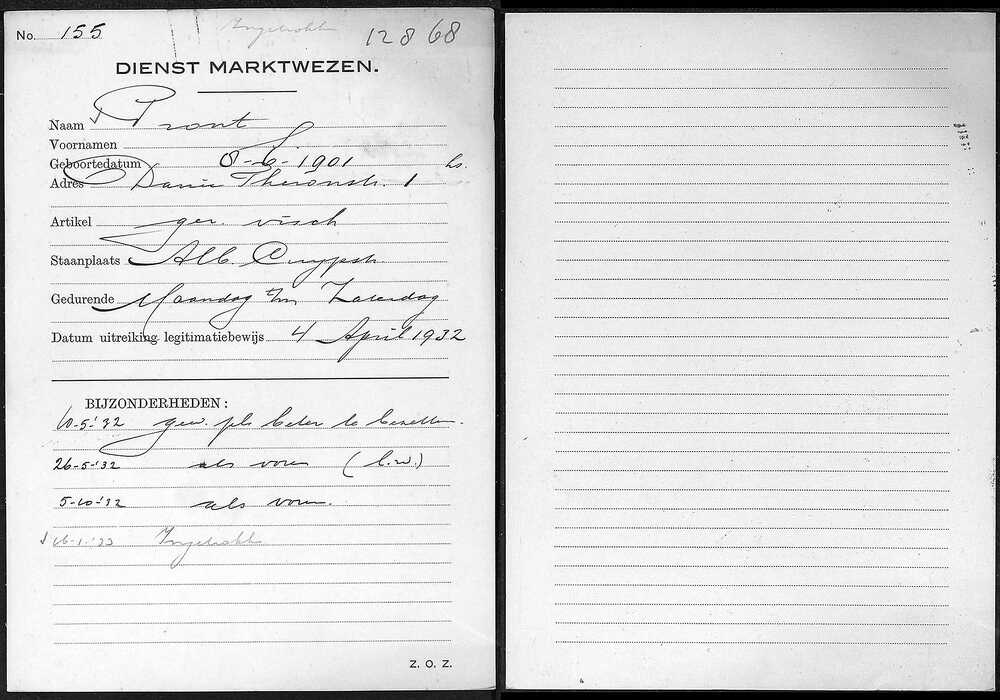 No. 155 Ingetrokken 12868
DIENST MARKTWEZEN.
Naam Pront
Voornamen
Geboortedatum 8-6-1901 hs.
Adres Danie Theronstr. 1
Artikel ger. visch
Staanplaats Alb. Cuypstr.
Gedurende Maandag t/m Zaterdag
Datum uitreiking legitimatiebewijs 4 April 1932
BIJZONDERHEDEN:
10-5-'32 gew. pls beter te bezetten.
26-5-'32 als voren (l.w.)
5-10-'32 als voren.
16-1-'33 Ingetrokken
Z. O. Z.